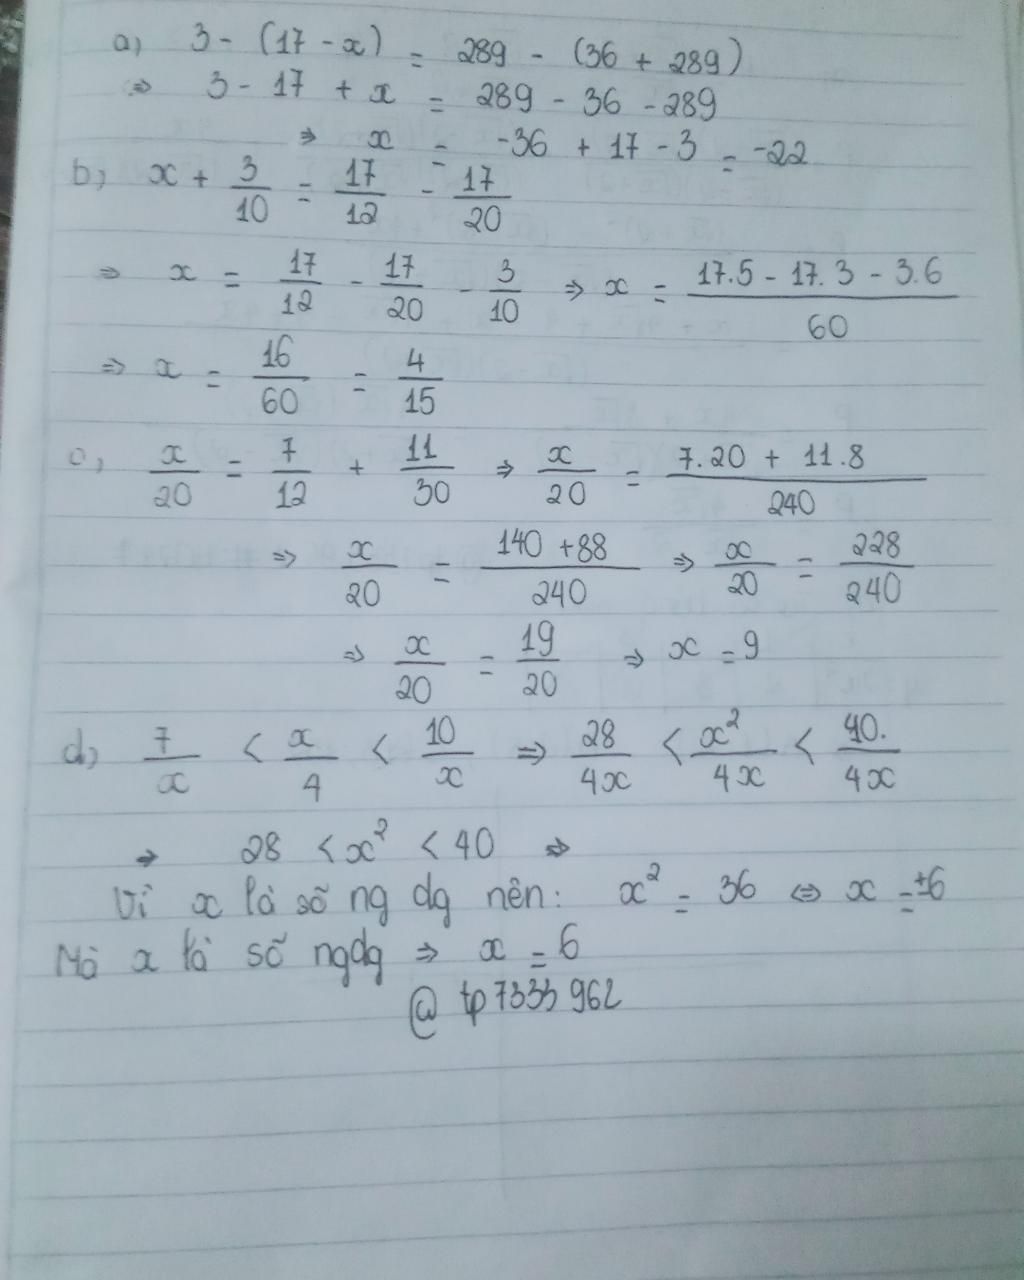 a) 3 - (17 - x) = 289 - (36 + 289)
⇒ 3 - 17 + x = 289 - 36 - 289
⇒ x = -36 + 17 - 3 = -22
b) x + 3/10 = 17/12 - 17/20
⇒ x = 17/12 - 17/20 - 3/10 ⇒ x = (17.5 - 17.3 - 3.6)/60
⇒ x = 16/60 = 4/15
c) x/20 = 7/12 + 11/30 ⇒ x/20 = (7.20 + 11.8)/240
⇒ x/20 = (140 + 88)/240 ⇒ x/20 = 228/240
⇒ x/20 = 19/20 ⇒ x = 9
d) 7/x < x/4 < 10/x ⇒ 28/4x < x²/4x < 40./4x
⇒ 28 < x² < 40 ⇒
Vì x là số ng dg nên: x² = 36 ⇔ x = ±6
Mà x là số ngdg ⇒ x = 6
@ tp7333962